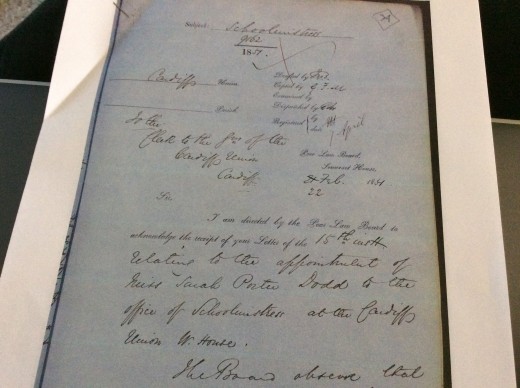 Subject: Schoolmistress
9062
1851.
Cardiff Union
Parish
Drafted by
Copied by
Examined by
Dispatched by
Registered by date April
To the
Clerk to the Gns of the
Cardiff Union
Cardiff
Poor Law Board,
Somerset House,
Feb. 1851
22
Sir
I am directed by the Poor Law Board to
acknowledge the receipt of your Letter of the 15th inst
relating to the appointment of
Miss Sarah Porter Dodd to the
office of Schoolmistress at the Cardiff
Union W. House.
The Board observe that